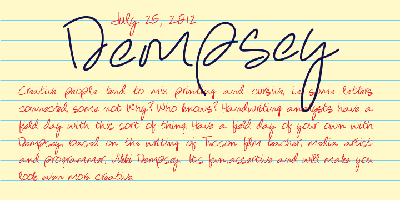 July 25, 2012
Dempsey
Creative people tend to mix printing and cursive, i.e. some letters
connected some not. Why? Who knows? Handwriting analysts have a
field day with this sort of thing. Have a field day of your own with
Dempsey, based on the writing of Tucson film teacher, media artist
and programmer, Dempsey. It's fun, assertive and will make you
look even more creative.